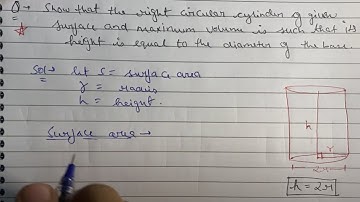 Q→ Show that the right circular cylinder of given
surface and maximum volume is such that its
height is equal to the diameter of the base.
Sol→ let S = surface area
r = radius
h = height.
Surface area →
h
r
2r
h = 2r